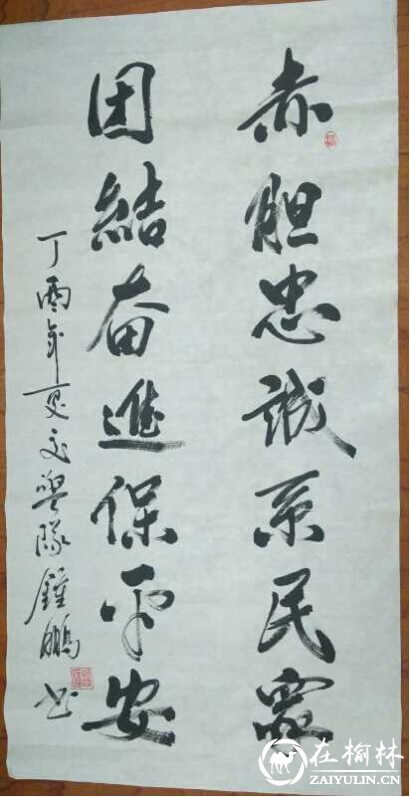 赤胆忠誠系民衆
团結奋進保平安
丁酉年夏交警隊鍾鵬书
在榆林
ZAIYULIN.CN